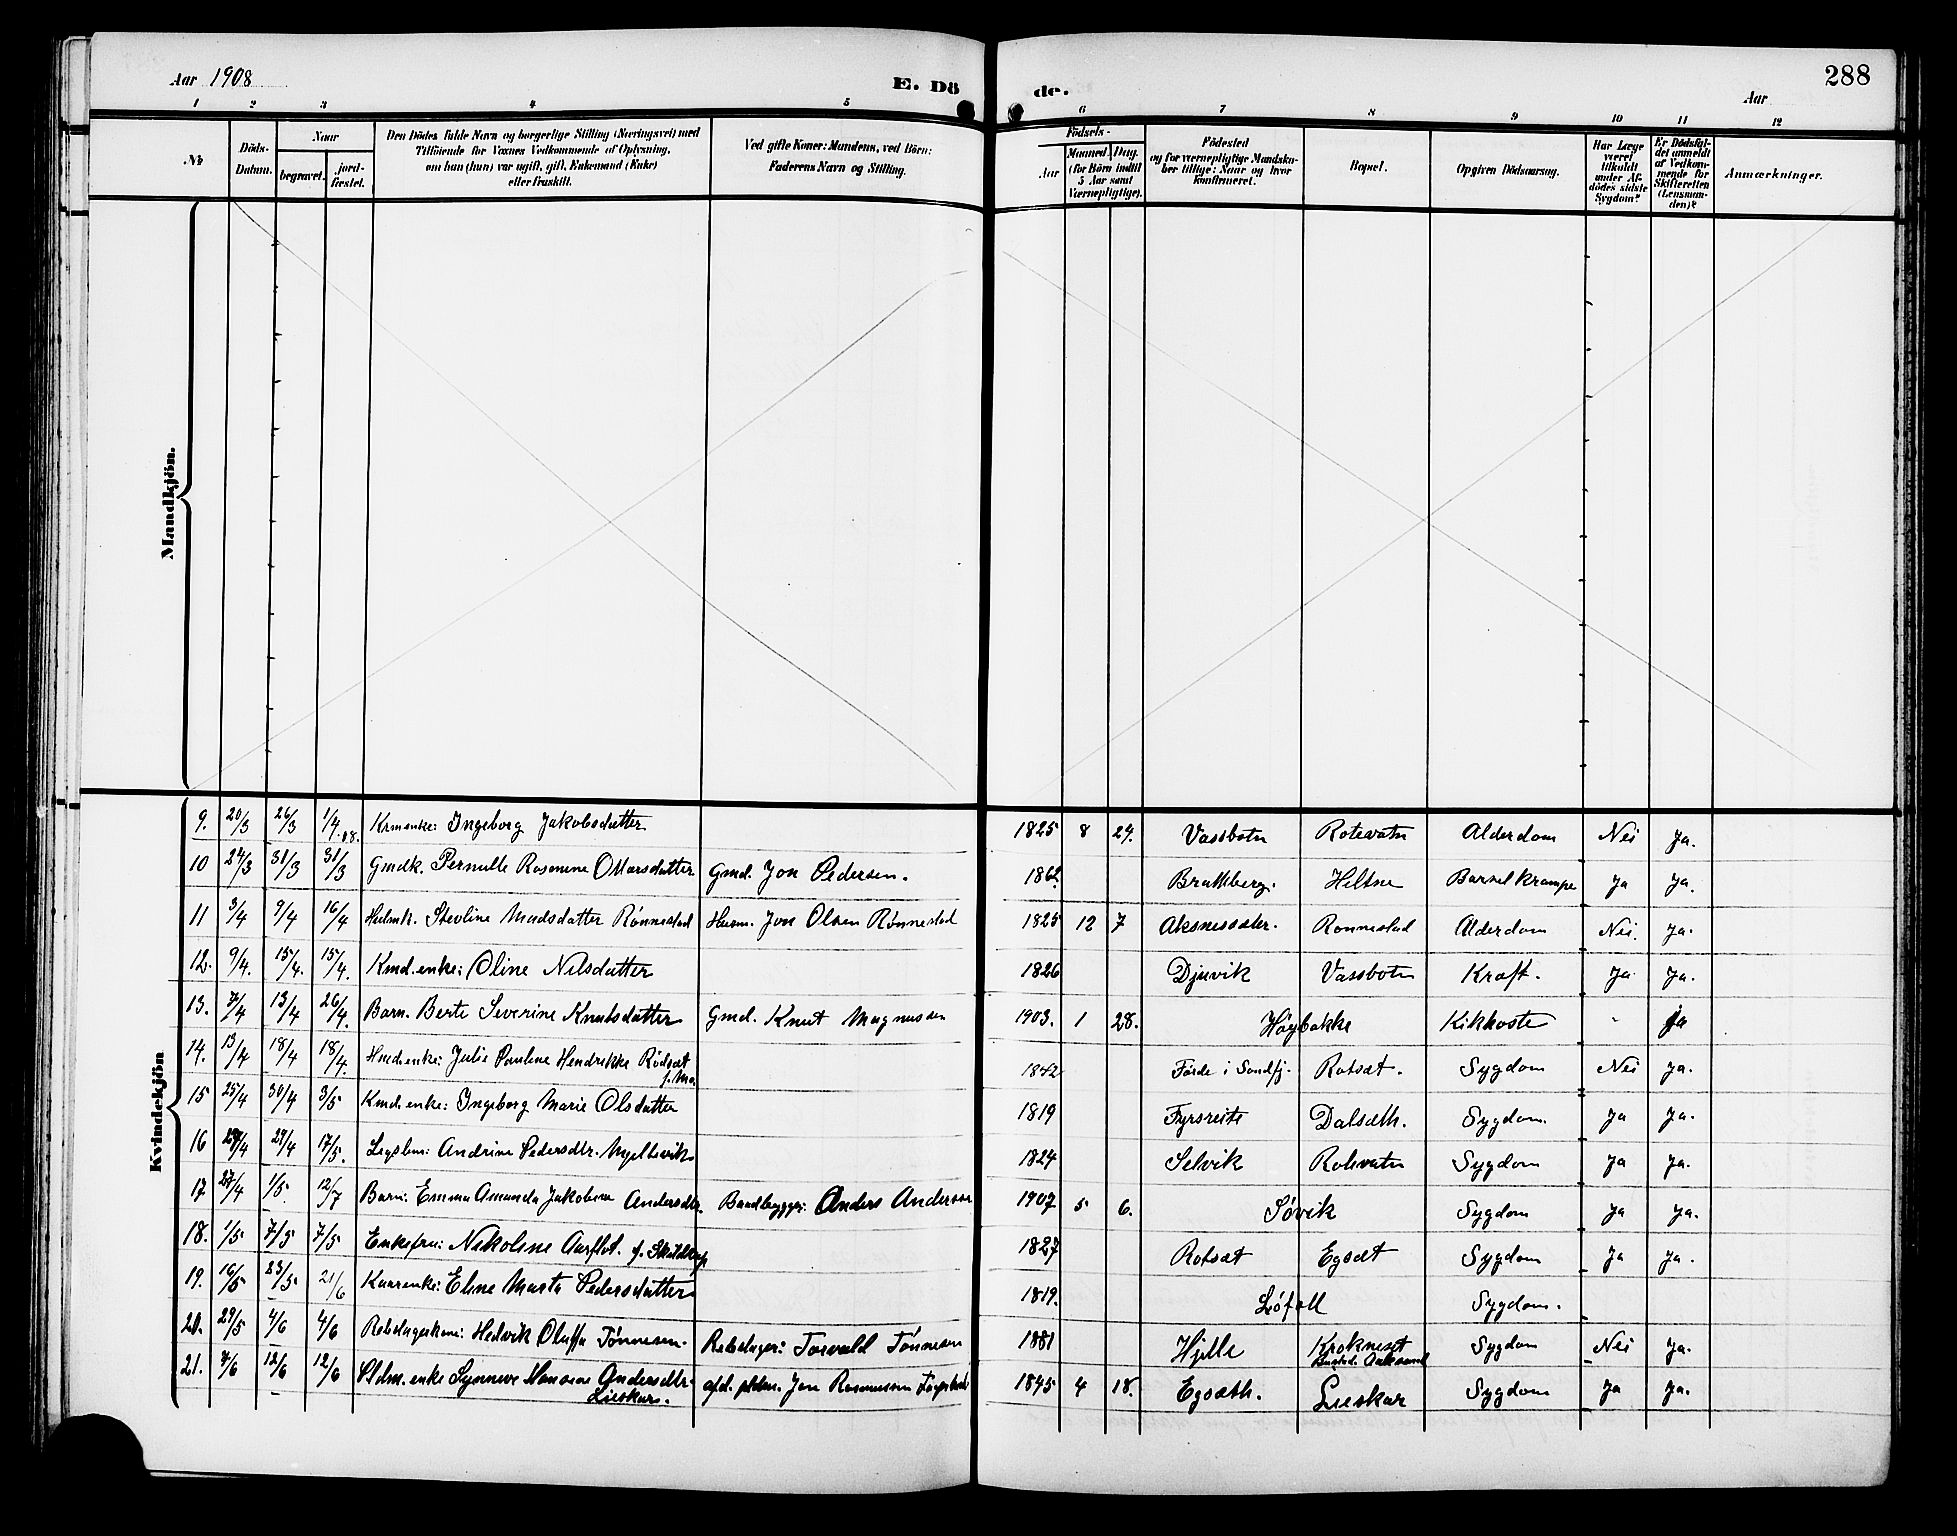 Aar 1908
E. Dö
de.
Aar
288
1 2 3 4 5 6 7 8 9 10 11 12
No
Döds-Datum.
Naar
begravet.
jord-fæstet.
Den Dödes fulde Navn og borgerlige Stilling (Næringsvei) med
Tilföiende for Voxnes Vedkommende af Oplysning,
om han (hun) var ugift, gift, Enkemand (Enke)
eller fraskilt.
Ved gifte Koner: Mandens, ved Börn:
Faderens Navn og Stilling.
Födsels-
Aar
Maaned. Dag.
(for Börn indtil
5 Aar samt
Værnepligtige).
Födested
og for værnepligtige Mandskaber tillige: Naar og hvor
konfirmeret.
Bopæl.
Opgiven Dödsaarsag.
Har Læge
været
tilkaldt
under Afdödes sidste
Sygdom?
Er Dödsfaldet anmeldt
af Vedkommende for
Skifteretten
(Lensmanden)?
Anmærkninger.
Mandkjön.
Kvindekjön
9. 20/3 26/3 1/4 08. Krmenke: Ingeborg Jakobsdatter 1825 8 24. Vassbotn Rotevatn Alderdom Nei Ja.
10 24/3 31/3 31/3 Gmdk. Pernille Rasmine OMarsdatter Gmd. Jon Pedersen. 1862. Brattberg. Hiltne Barselkrampe Ja Ja.
11 3/4 9/4 16/4 Husmk. Stevline Madsdatter Rønnestad Husm. Jon Olsen Rønnestad 1825 12 7 Aksnessæter. Ronnestad Alderdom Nei. Ja.
12. 9/4. 15/4. 15/4. Kmd.enke: Oline Nilsdatter 1826 Djuvik Vassbotn Kræft. Ja Ja.
13. 7/4 13/4 26/4. Barn. Berte Severine Knutsdatter Gmd. Knut Magnussen 1903. 1 28. Høybakke Kikhoste - Ja
14. 13/4 18/4 18/4. Hmd.enke: Julie Pauline Hendrikke Rødsæt 1842 Førde i Søndfj. Rotsæt. Sygdom Nei Ja.
15 25/4 30/4 3/5 Kmd.enke: Ingeborg Marie Olsdatter 1819 Fyrsreite Dalsæth. Sygdom. Ja Ja.
16 29/4 17/5. Legslem: Andrine Pedersdtr. Myklevik 1824 Selvik Rotevatn Sygdom Ja Ja.
17 27/4 1/5. 12/7 Barn: Emma Amanda Jakobine Andersdtr. Baadbygger: Anders Andersen 1907 5 6. Søvik Sygdom Ja Ja.
18. 1/5 7/5 7/5 Enkefru: Nikoline Aarflot. f. 1827 Rotsæt Egsæt Sygdom Ja Ja.
19. 16/5 23/5 21/6 Kaarenke: Eline Marta Pedersdatter 1819. Løfoll Sygdom.
20. 29/5 4/6 4/6 Rebslagerkone: Hedvik Oluffa Tønnesen. Rebslager: Torvald Tønnesen 1881 Hjelle Krokneset Sygdom Nei Ja.
21. 7/6 12/6 12/6 Pldm.enke Synneve Hansine Andersdtr. Lieskar. afd. pldm. Jon Rasmussen 1845 4 18. Egsæth. Lieskar Sygdom Ja Ja.